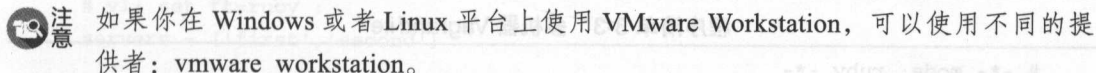 注意 如果你在 Windows 或者 Linux 平台上使用 VMware Workstation，可以使用不同的提
供者：vmware_workstation。